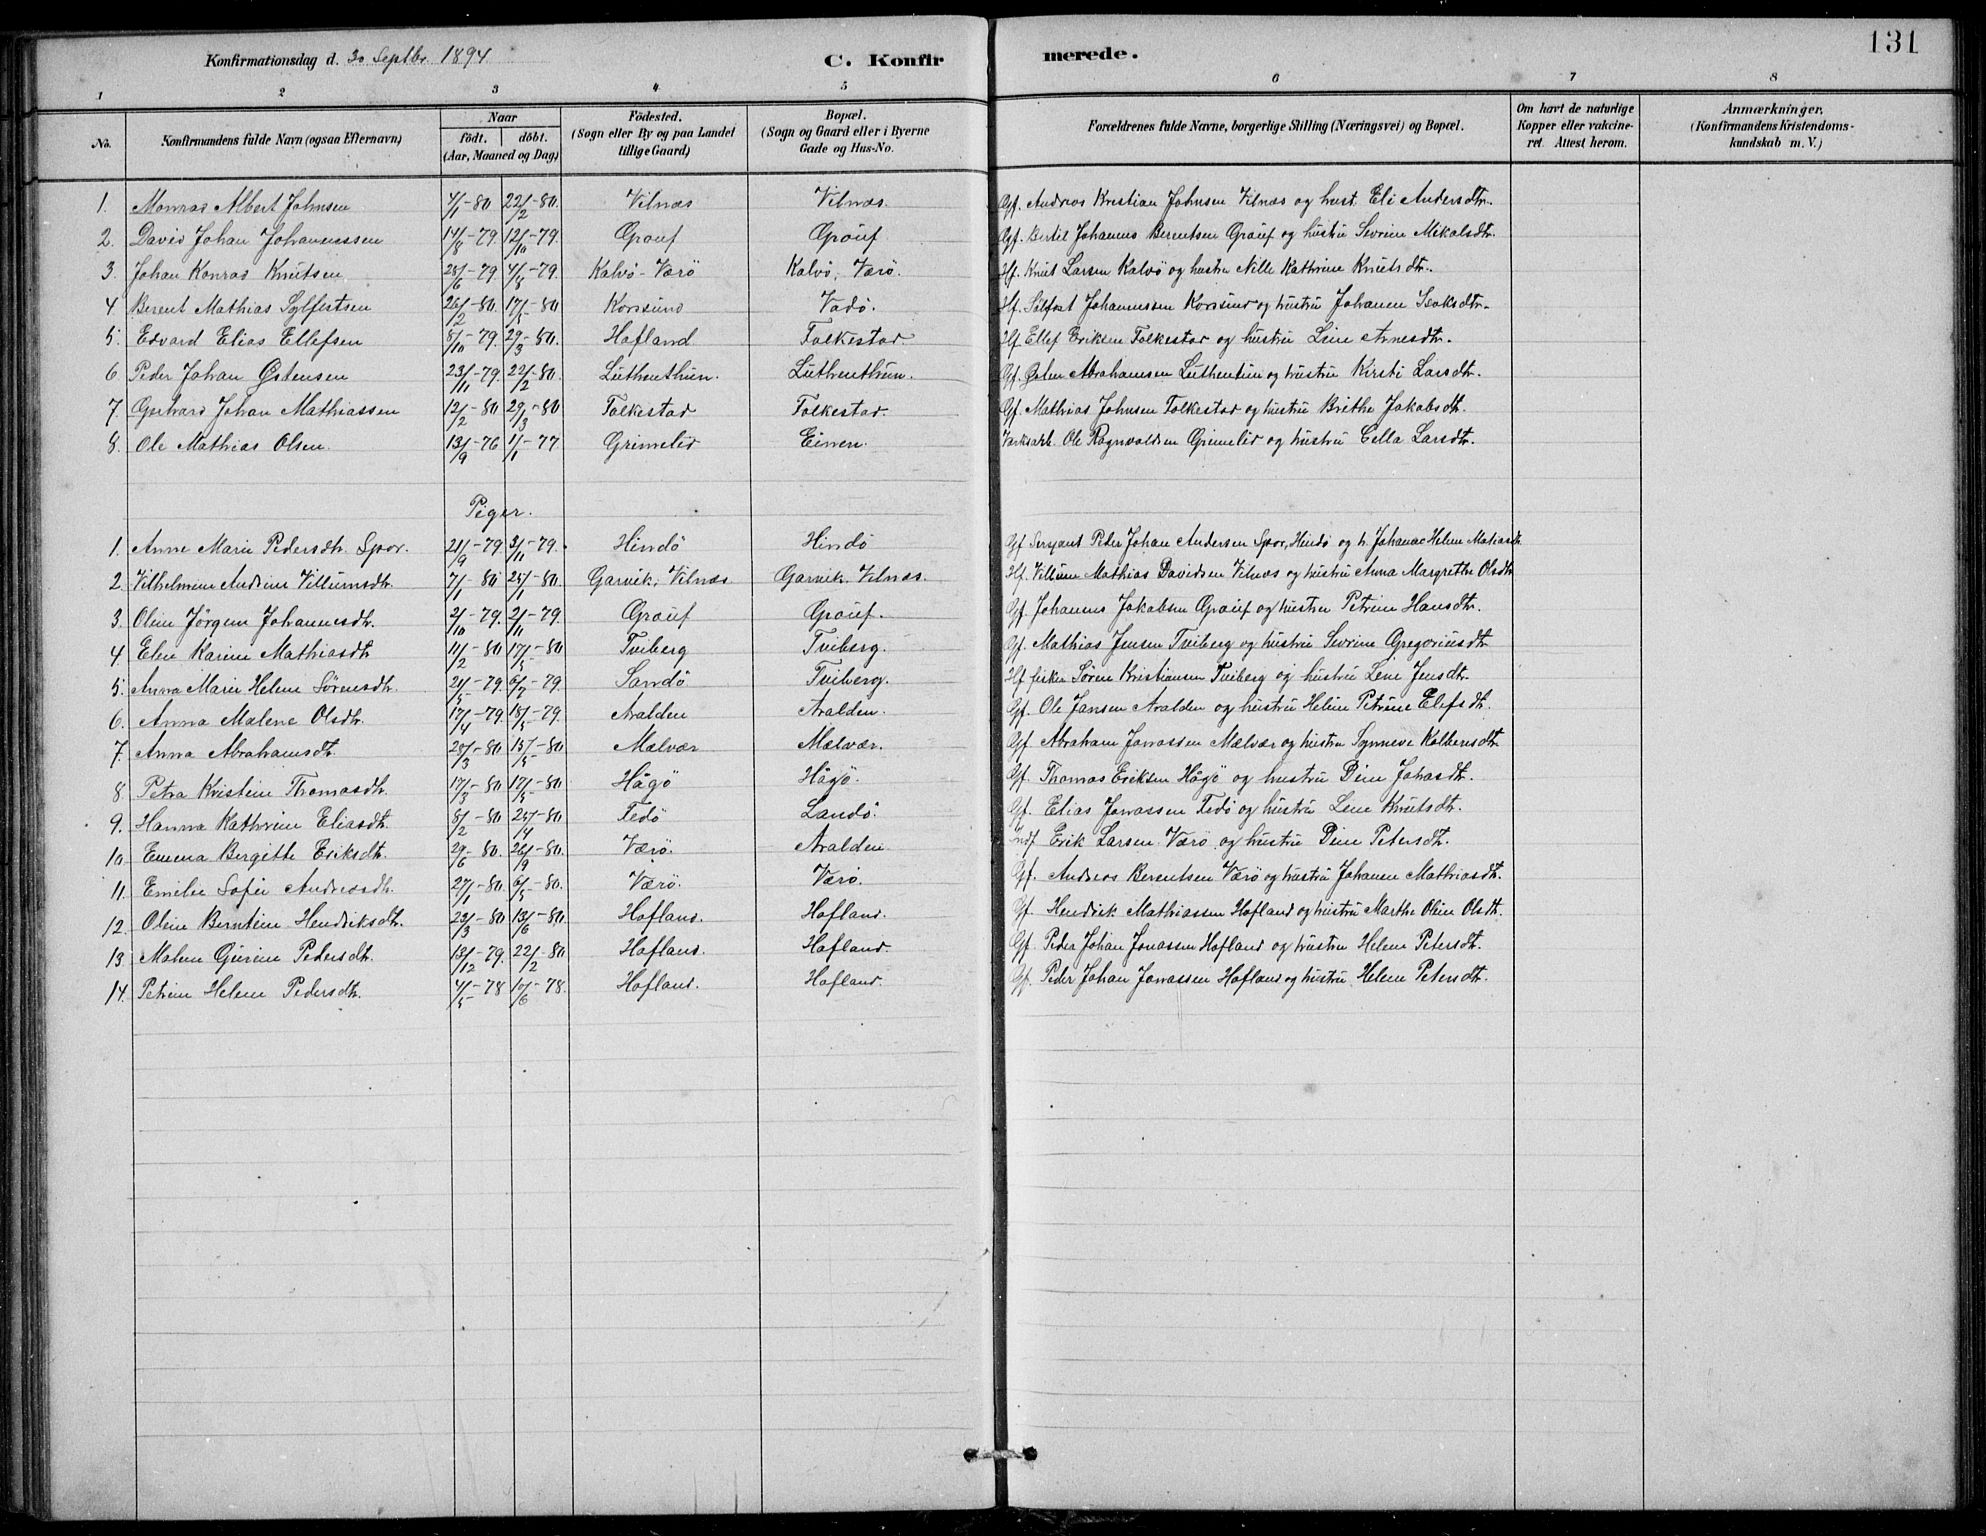 131
Konfirmationsdag d. 30 Septbr 1894 C. Konfir merede.
1 2 3 4 5 6 7 8
No. Konfirmandens fulde Navn (ogsaa Efternavn) Naar födt. döbt. (Aar, Maaned og Dag) Födested. (Sogn eller By og paa Landet tillige Gaard) Bopæl. (Sogn og Gaard eller i Byerne Gade og Hus-No. Forældrenes fulde Navne, borgerlige Stilling (Næringsvei) og Bopæl. Om havt de naturlige Kopper eller vakcineret. Attest herom. Anmærkninger. (Konfirmandens Kristendomskundskab m. V.)
1. Monrad Albert Johnsen 4/1-80 22/2-80. Vilnæs Vilnæs. Gf. Andreas Kristian Johnsen Vilnæs og hust. Eli Andersdtr.
2. David Johan Johannessen 14/8-79. 12/10-79. Gröuf Gröuf Gf. Bertil Johannes Berentsen Gröuf og hustru Sevrine Mikalsdtr.
3. Johan Konrad Knutsen 25/6-79 4/8-79. Kalvö-Værö Kalvö, Værö. Hf. Knut Larsen Kalvö og hustru Nille Kathrine Knutsdtr.
4 Berent Mathias Sylfestsen 26/2-80. 17/5-80 Korssund Vadö. Hf. Sölfest Johannessen Korssund og hustru Johanne Isaksdtr.
5. Edvard Elias Ellefsen 8/10-79. 29/3-80. Hofland Folkestad Hf Ellef Eriksen Folkestad og hustru Line Arnesdtr.
6 Peder Johan Østensen 23/11-79. 22/2-80. Luthenthun. Luthenthun. Gf. Østen Abrahamsen Luthentun og hustru Kirsti Larsdtr.
7. Johan Mathiassen 12/2-80 29/3-80 Folkestad Folkestad. Gf. Mathias Johnsen Folkestad og hustru Brithe Jakobsdtr.
8. Ole Mathias Olsen. 13/9-76 1/1-77 Grimelid Einen. Ole Ragnvaldsen Grimelid og hustru Cella Larsdtr.
Piger.
1. Anne Marie Pedersdtr. Spor. 21/9-79. 3/11-79. Hindö Hindö Gf Sergeant Peder Johan Andersen Spor, Hindö og h. Johanne Helene Matiasdtr
2. Vilhelmine Andrine Villumsdtr. 7/1-80 25/1-80. Garvik, Vilnæs Garvik. Vilnæs. Hf. Villum Mathias Davidsen Vilnæs og hustru Anna Margrethe Olsdtr
3. Oline Jörgine Johannesdtr. 2/10-79. 2/11-79 Gröuf Gröuf. Gf. Johannes Jakobsen Gröuf og hustru Petrine Hansdtr.
4 Eline Karine Mathiasdtr 11/2-80 17/5-80 Tviberg Tviberg. Gf. Mathias Jensen Tviberg og hustru Sevrine Gregoriusdtr
5. Anna Marie Helene Sörensdtr. 21/5-79. 6/7-79. Sandö Tviberg. Hf fisker Sören Kristiansen Tviberg og hustru Line Jensdtr.
6. Anna Malene Olsdtr. 17/4-79. 18/5-79. Aralden Aralden. Gf. Ole Jansen Aralden og hustru Helene Petrine Elefsdtr.
7. Anna Abrahamsdtr. 20/3-80 15/5-80 Mælvær Mælvær. Gf. Abraham Jonassen Mælvær og hustru Synneve Kolbensdtr
8. Petra Kristine Thomasdtr. 17/3-80 17/5-80 Hågö Hågö. Gf. Thomas Eriksen Hågö og hustru Dine Johasdtr.
9. Hanna Kathrine Eliasdtr. 8/2-80 25/4-80 Tedö Landö. Gf. Elias Jonassen Tedö og hustru Lene Knutsdtr.
10. Emma Bergitte Eriksdtr. 29/6-80. 26/9-80. Værö. Aralden Indf Erik Larsen Værö og hustru Dine Petersdtr.
11. Emilie Sofie Andreasdtr. 27/1-80. 6/5-80. Værö. Værö. Gf. Andreas Berentsen Værö og hustru Johanne Mathiasdtr.
12. Oline Berntine Hendriksdtr. 23/3-80 13/6-80. Hofland. Hofland. Gf. Hendrik Mathiassen Hofland og hustru Marthe Oline Olsdtr.
13. Malene Gurine Pedersdtr. 13/12-79. 22/2-80 Hofland. Hofland. Gf. Peder Johan Jonassen Hofland og hustru Helene Petersdtr.
14. Petrine Helene Pedersdtr. 4/5-78 10/6-78. Hofland. Hofland. Gf. Peder Johan Jonassen Hofland og hustru Helene Petersdtr.